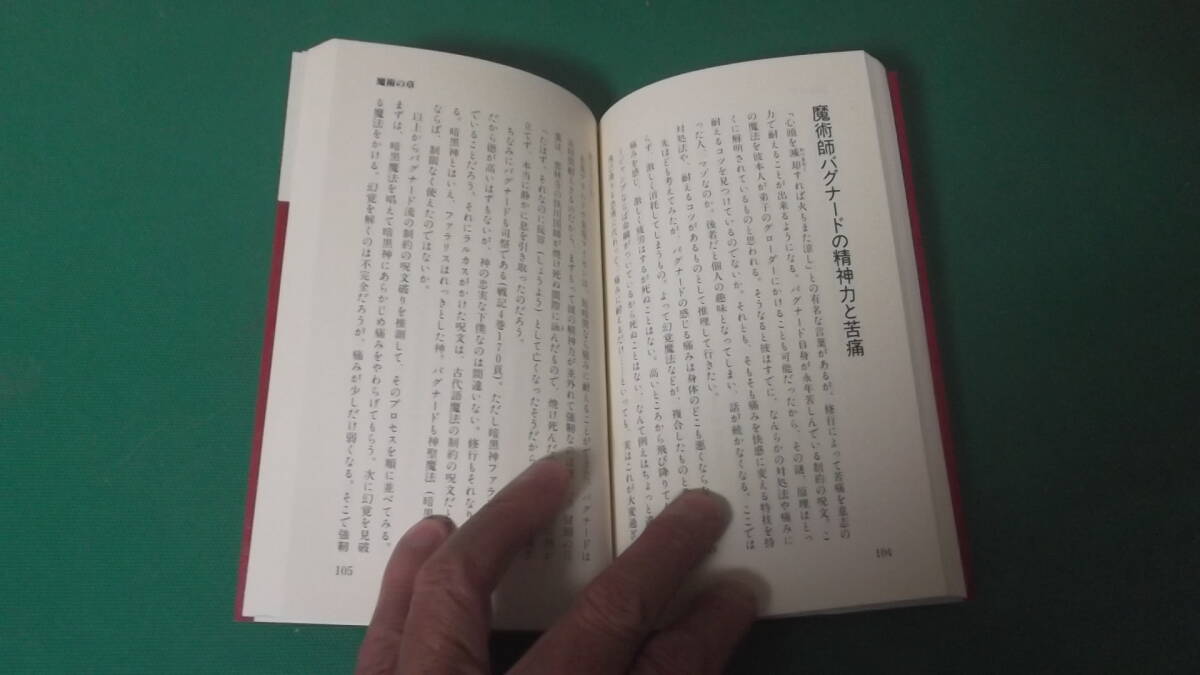 魔術師バグナードの精神力と苦痛
「心頭を滅却すれば火もまた涼し」との有名な言葉があるが、修行によって苦痛を意志の
力で耐えることが出来るようになる。バグナード自身が永年苦しんでいる制約の呪文。こ
の魔法を彼本人が弟子のグローダーにかけることも可能だったから、その謎、原理はとっ
くに解明されているものと思われる。そうなると彼はすでに、なんらかの対処法や痛みに
耐えるコツを見つけているのでないか。それとも、そもそも痛みを快感に変える特技を持
った人、マゾなのか。後者だと個人の趣味となってしまい、話が続かなくなる。ここでは
対処法や、耐えるコツがあるものとして推理して行きたい。
先ほども考えてみたが、バグナードの感じる痛みは身体のどこも悪くなら
ず、激しく消耗してしまうもの。よって幻覚魔法などが、複合したものと
痛みを感じ、激しく疲労はするが死ぬことはない。高いところから飛び降りて
ジャンプならば命綱がついているから死ぬことはない、なんて例えはちょっと違
104
魔術の章
たはず。それなのに従容（しょうよう）として亡くなったそうだから
立てず、本当に静かに息を引き取ったのだろう。
ちなみにバグナードも司祭である（戦記4巻170頁）、ただし暗黒神ファラ
だから徳が高いはずもないが、神の忠実な下僕なのは間違いない。修行もそれなり
ていることだろう。それにラルカスがかけた呪文は、古代語魔法の制約の呪文だと
る。暗黒神とはいえ、ファラリスはれっきとした神。バグナードも神聖魔法（暗黒
ならば、制限なく使えたのではないか。
以上からバグナード流の制約の呪文破りを推測して、そのプロセスを順に並べてみる。
まずは、暗黒魔法を唱えて暗黒神にあらかじめ痛みをやわらげてもらう。次に幻覚を見破
る魔法をかける。幻覚を解くのは不完全だろうが、痛みが少しだけ弱くなる。そこで強靭
105